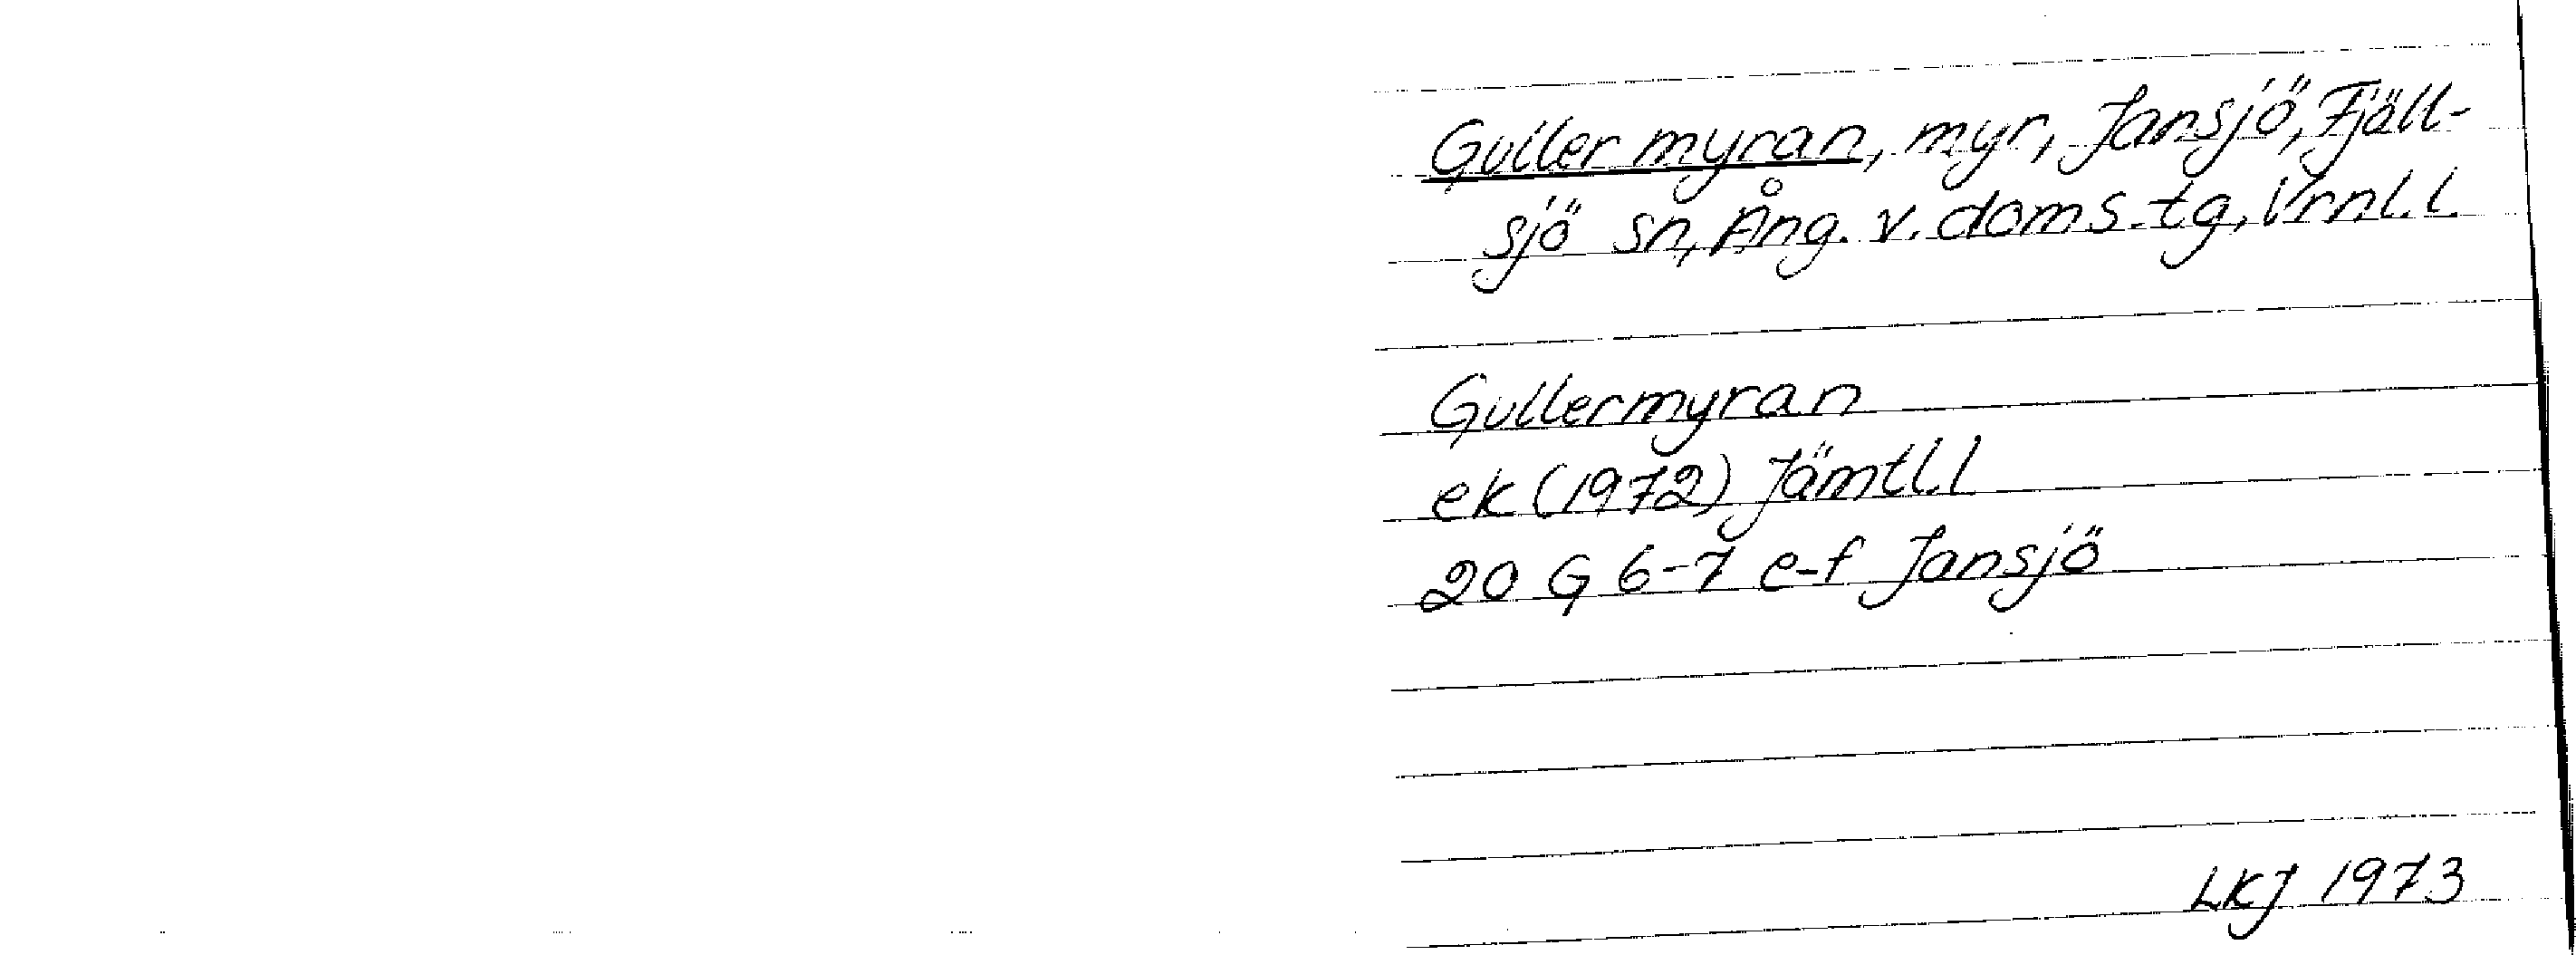 Gullermyran, myr, Jansjö, Fjäll-
sjö sn, Ång. v. doms.tg, Vrnl.l.
Gullermyran
ek (1972) Jämtl.l
20 G 6-7 e-f Jansjö
LKJ 1973